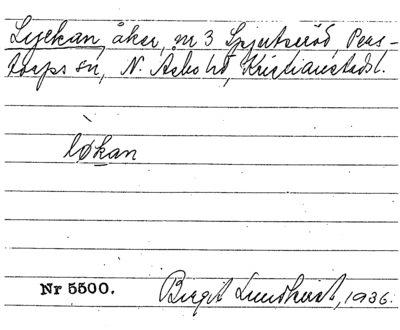 Lyckan, åker, nr 3 Spjutseröd, Pers-
torps sn, N. Åsbo hd, Kristianstads l.
løkan
Nr 5500. Birgit Lundkvist, 1936.